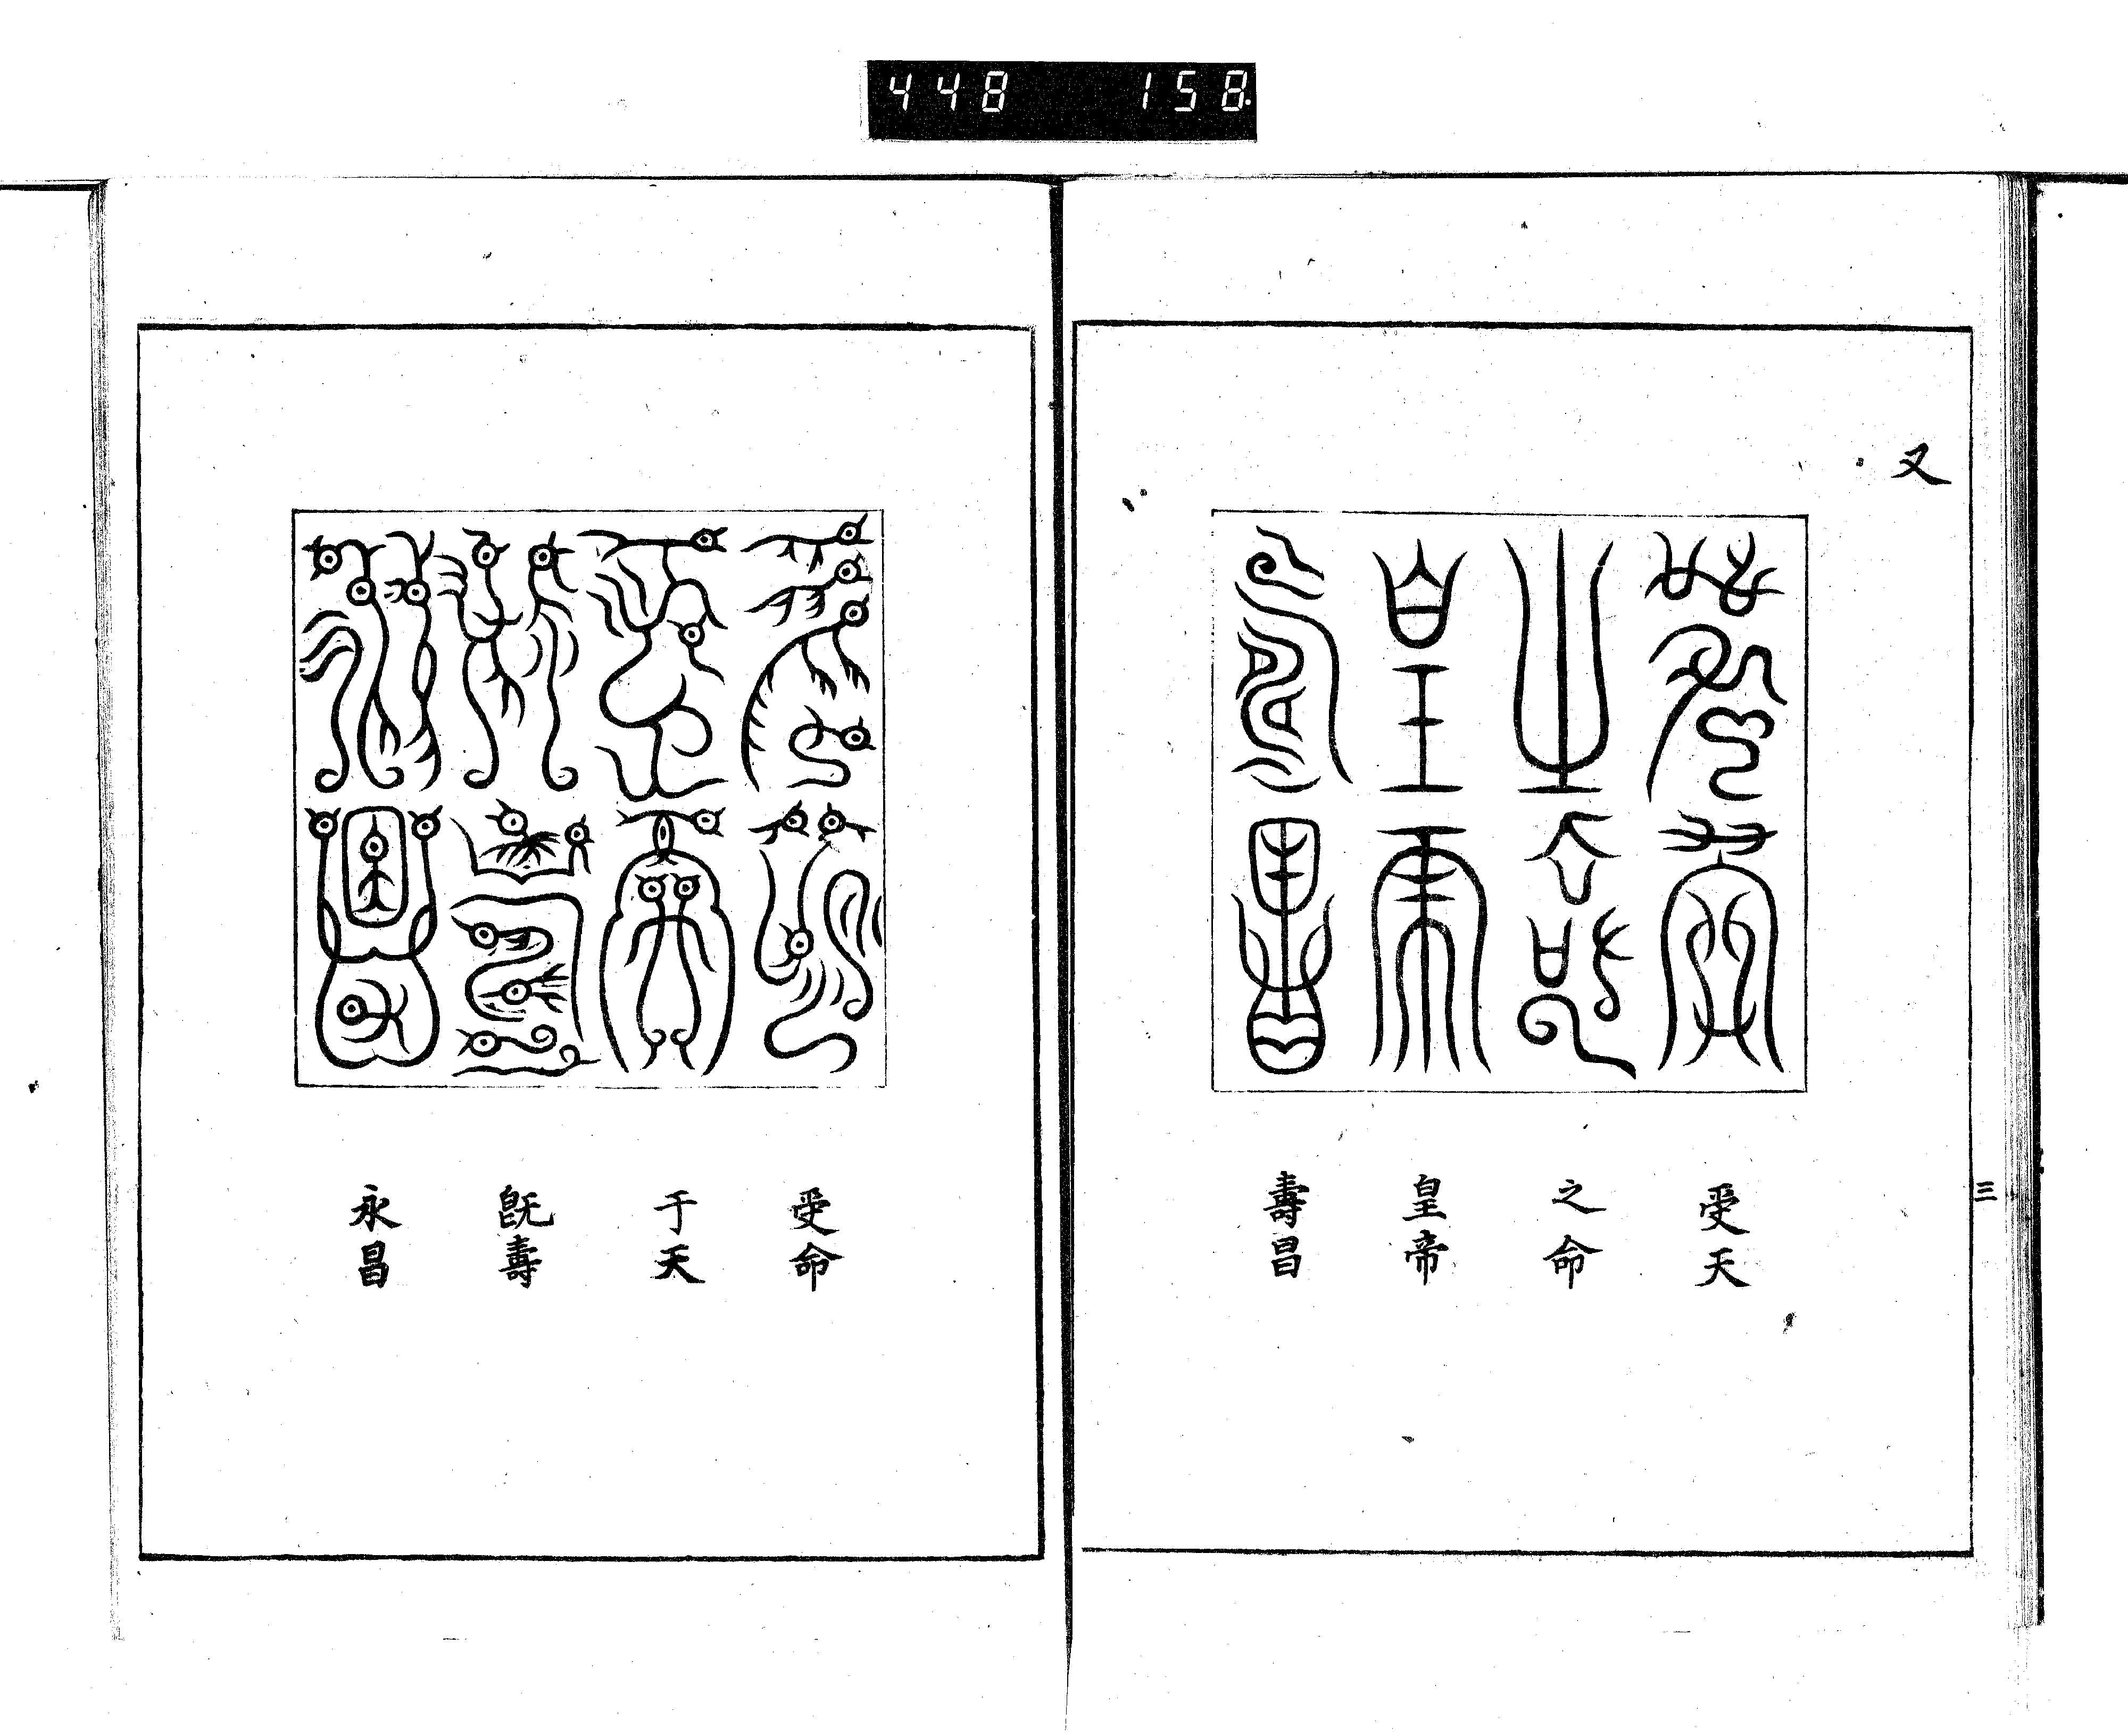 448 158
又
受天
之命
皇帝
壽昌
三
受命
于天
旣壽
永昌